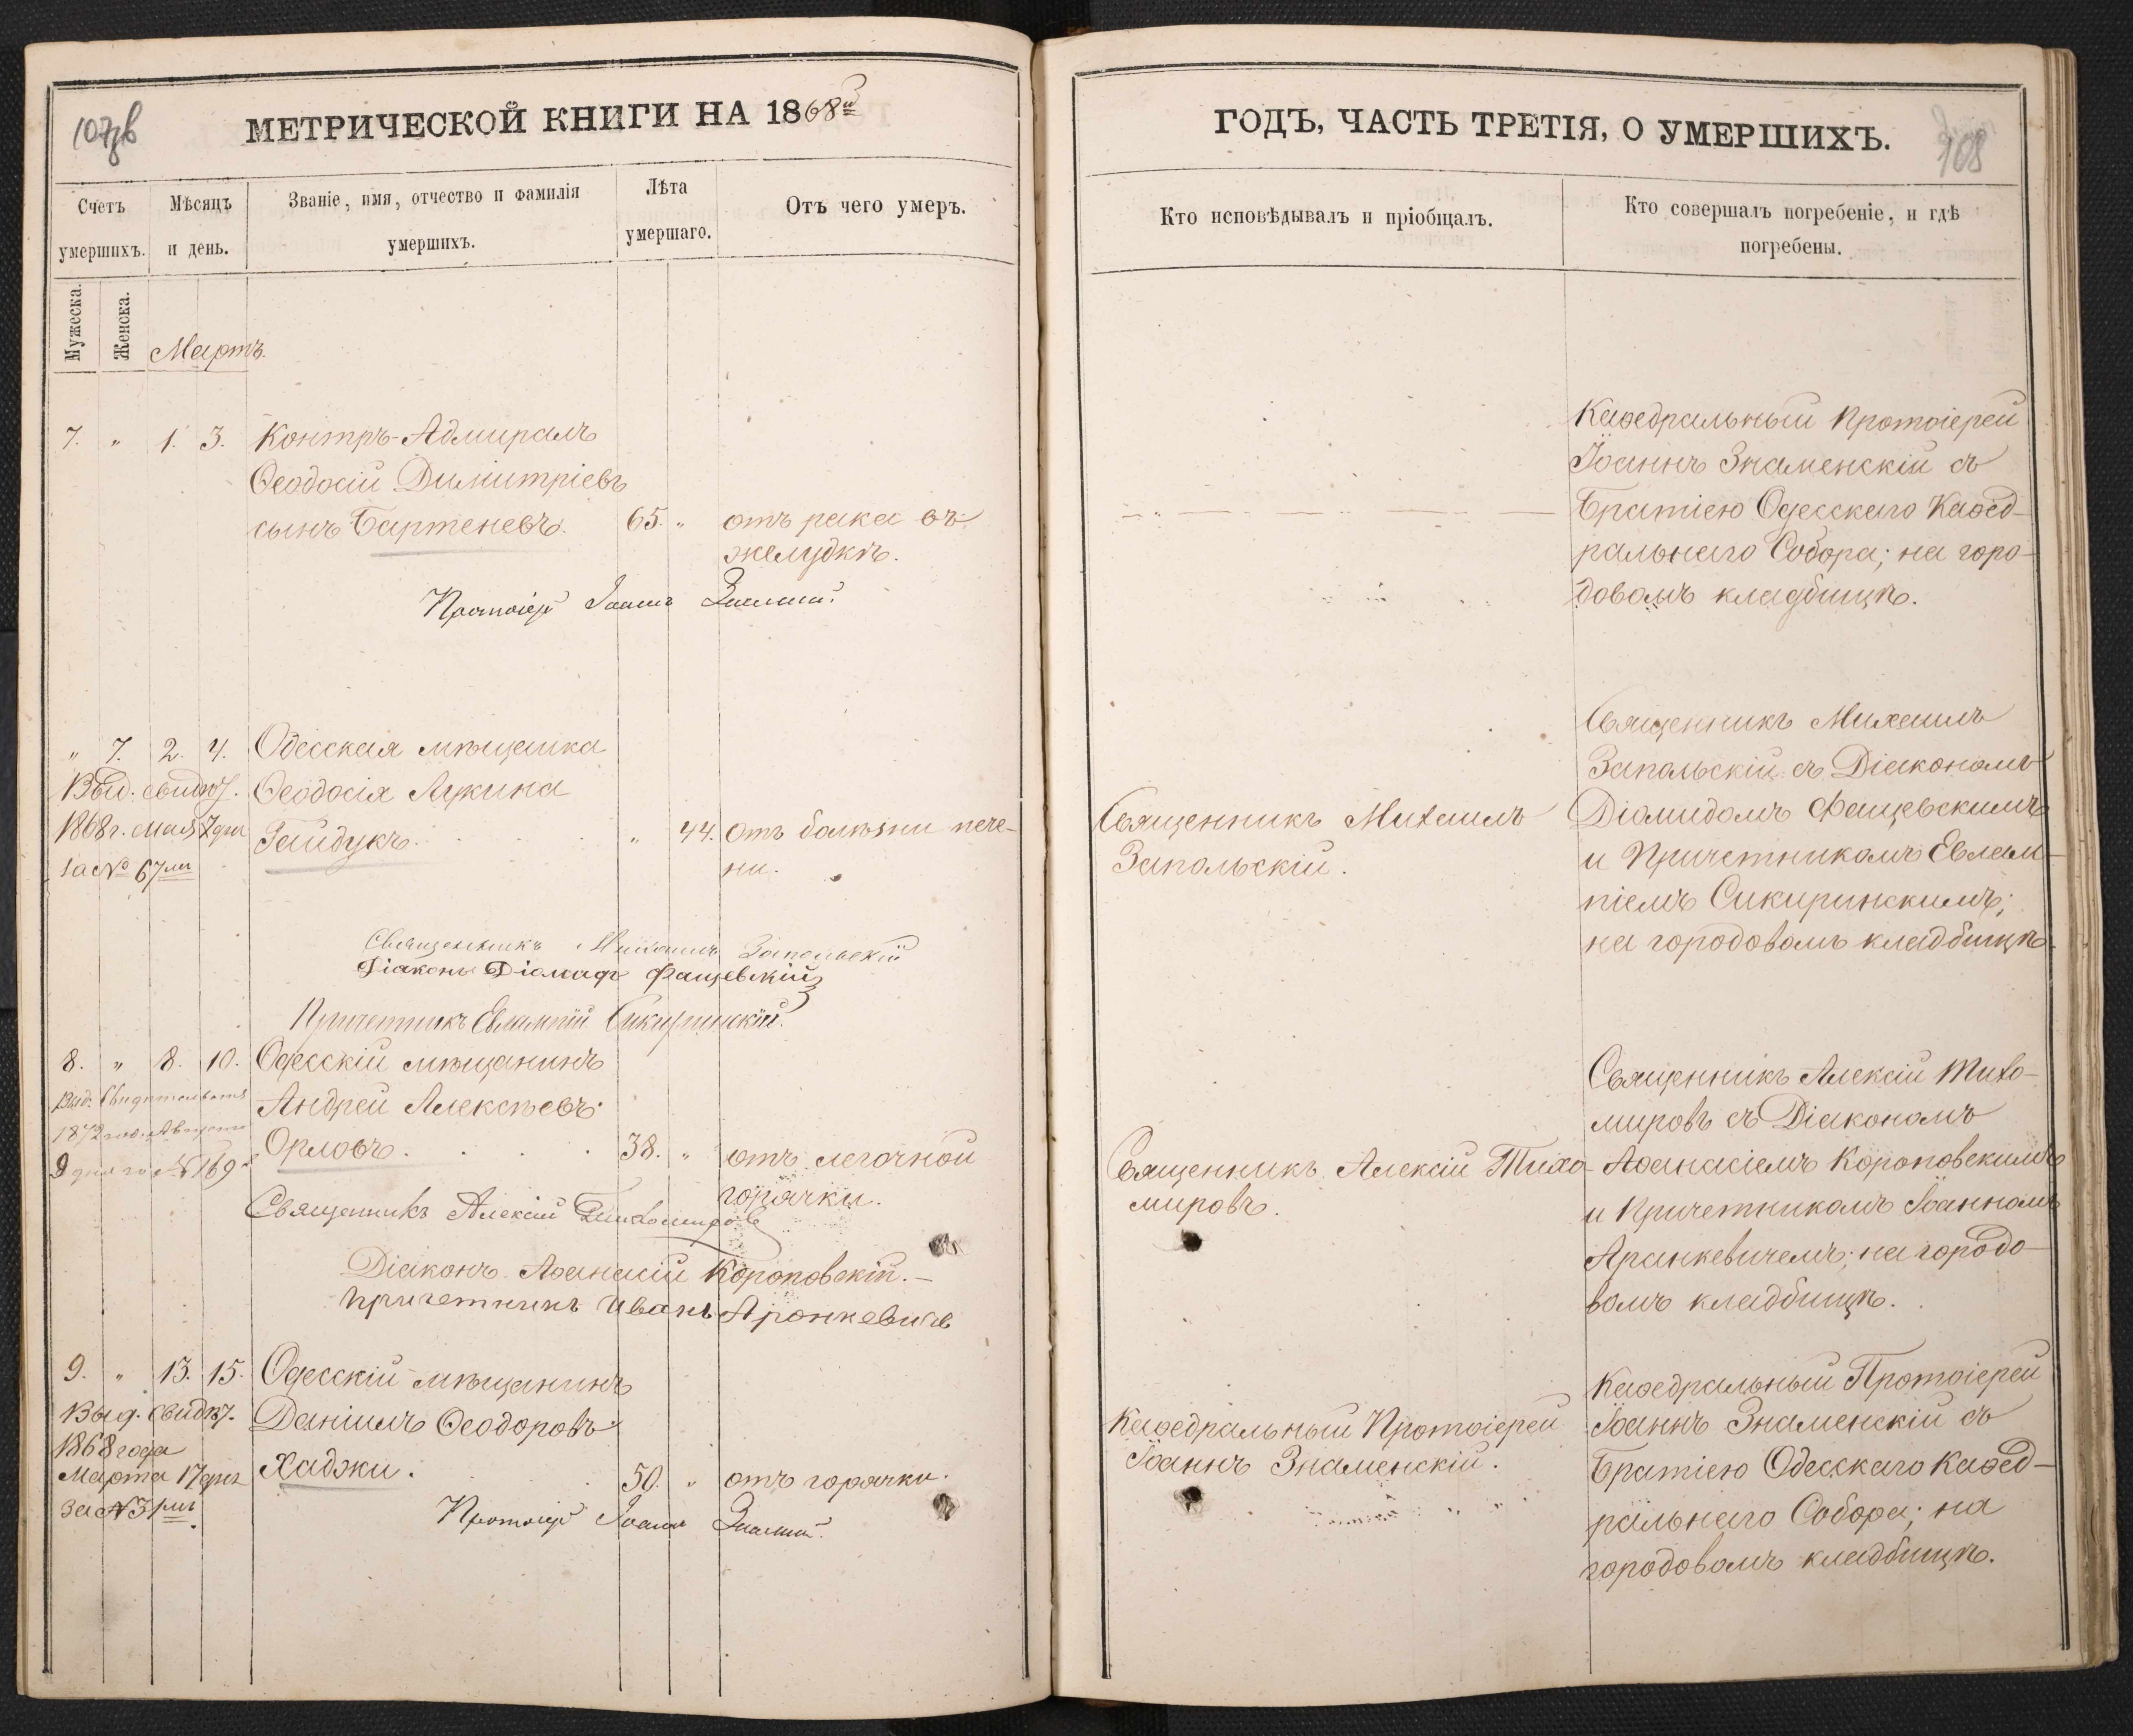 107зв
МЕТРИЧЕСКОЙ КНИГИ НА 1868й
Счетъ умершихъ.
Мѣсяцъ и день.
Званіе, имя, отчество и фамилія умершихъ.
Лѣта умершаго.
Отъ чего умеръ.
Мужеска.
Женска.
Мартъ.
7. " 1. 3. Контръ-Адмиралъ
Ѳеодосій Димитріевъ
сынъ Бартеневъ. 65. " отъ рака въ
желудкѣ.
Протоіер Іоаннъ
" 7. 2. 4. Одесская мѣщанка
Выд. свидѣт. Ѳеодосія Лукина
1868 г. мая 7 дня Гайдукъ. " 44. отъ болѣзни пече-
за № 67мъ ни.
Священникъ Михаилъ Запольскій
Діаконъ Діомидъ Фащевскій
Причетникъ Евлампій Сикиринскій.
8. " 8. 10. Одесскій мѣщанинъ
Выд. Свидѣтельство Андрей Алексѣевъ
1872 год. Августа Орловъ. 38. " отъ легочной
9 дня за № 169 горячки.
Священникъ Алексій Тихомировъ
Діаконъ Аѳанасій Короповскій.
Причетникъ Иванъ Аронкевичъ
9. " 13. 15. Одесскій мѣщанинъ
Выд. свидѣт. Даніилъ Ѳеодоровъ
1868 года
Марта 17 дня Хаджи. 50. " отъ горячки.
за № 31мъ
Протоіер Іоаннъ
ГОДЪ, ЧАСТЬ ТРЕТІЯ, О УМЕРШИХЪ.
108
Кто исповѣдывалъ и пріобщалъ.
Кто совершалъ погребеніе, и гдѣ погребены.
Каѳедральный Протоіерей
Іоаннъ Знаменскій съ
Братіею Одесскаго Каѳед-
ральнаго Собора; на горо-
довомъ кладбищѣ.
Священникъ Михаилъ
Запольскій съ Діакономъ
Священникъ Михаилъ Діомидомъ Фащевскимъ
Запольскій. и Причетникомъ Евлам-
піемъ Сикиринскимъ;
на городовомъ кладбищѣ.
Священникъ Алексій Тихо-
мировъ съ Діакономъ
Священникъ Алексій Тихо- Аѳанасіемъ Короповскимъ
мировъ. и Причетникомъ Іоанномъ
Аранкевичемъ; на городо-
вомъ кладбищѣ.
Каѳедральный Протоіерей
Каѳедральный Протоіерей Іоаннъ Знаменскій съ
Іоаннъ Знаменскій. Братіею Одесскаго Каѳед-
ральнаго Собора; на
городовомъ кладбищѣ.